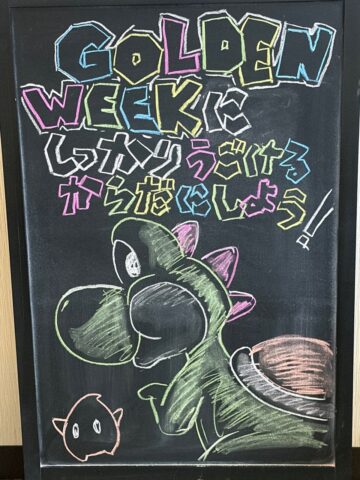 GOLDEN
WEEKに
しっかりうごける
からだにしよう!!